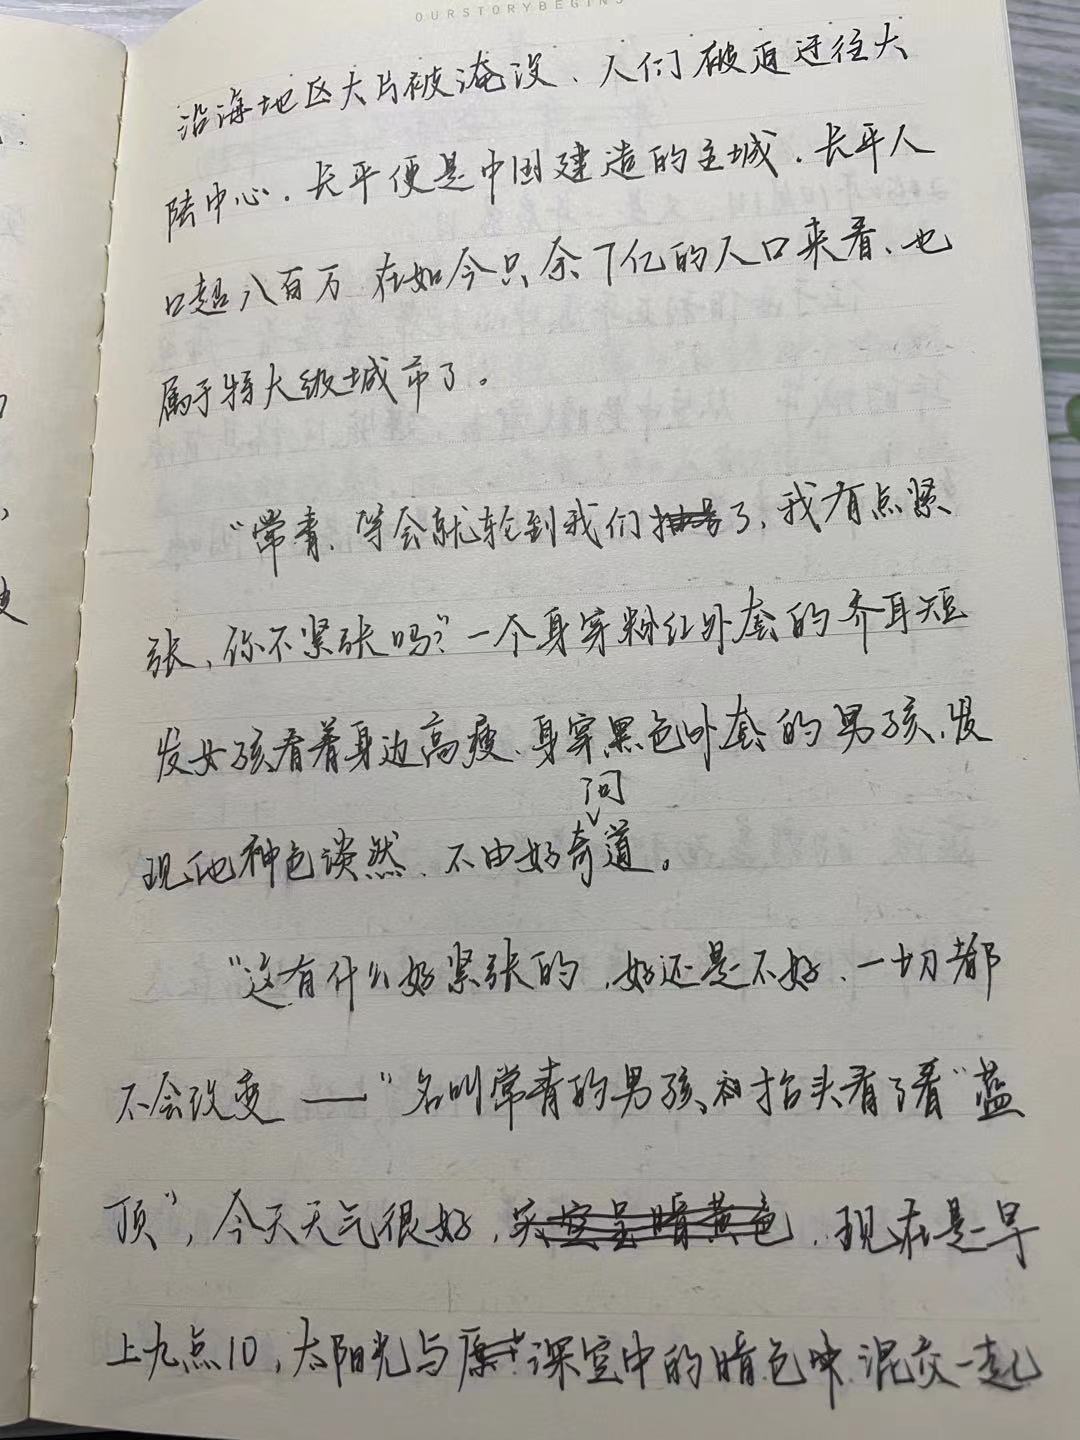 OURSTORYBEGINS
沿海地区大片被淹没、人们被迫迁往大
陆中心.长平便是中国建造的主城.长平人
口超八百万 在如今只余7亿的人口来看、也
属于特大级城市了。
“常青、等会就轮到我们抽号了,我有点紧
张,你不紧张吗?”一个身穿粉红外套的齐耳短
发女孩看着身边高瘦、身穿黑色外套的男孩,发
问
现他神色淡然、不由好奇道。
“这有什么好紧张的,好还是不好、一切都
不会改变——”名叫常青的男孩 抬头看了看“蓝
顶”,今天天气很好,天空呈暗黄色.现在是早
上九点10,太阳光与 深空中的暗色 混交一起